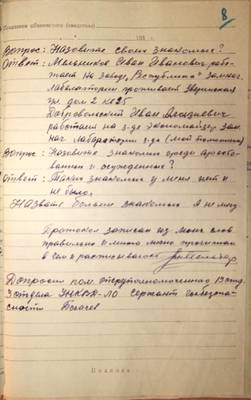 8
Показания обвиняемого (свидетеля)
193 г.
Вопрос: Назовите своих знакомых?
Ответ: Мельников Иван Иванович рабо-
тает на заводе „Республика" зам нач.
лаборатории проживает
дом 2 кв 25
Добровольский Иван
работает на з-де зам
нач лаборатории з-да
Вопрос: Назовите знакомых среди аресто-
ванных и осужденных?
Ответ: Таких знакомых у меня нет и
не было.
Назвать больше знакомых я не могу
Протокол записан из моих слов
правильно и мною лично прочитан
в чем и расписываюсь
Допросил пом. оперуполномоченного 13 отд.
3 отдела УНКВД-ЛО сержант госбезопас-
ности
Подпись